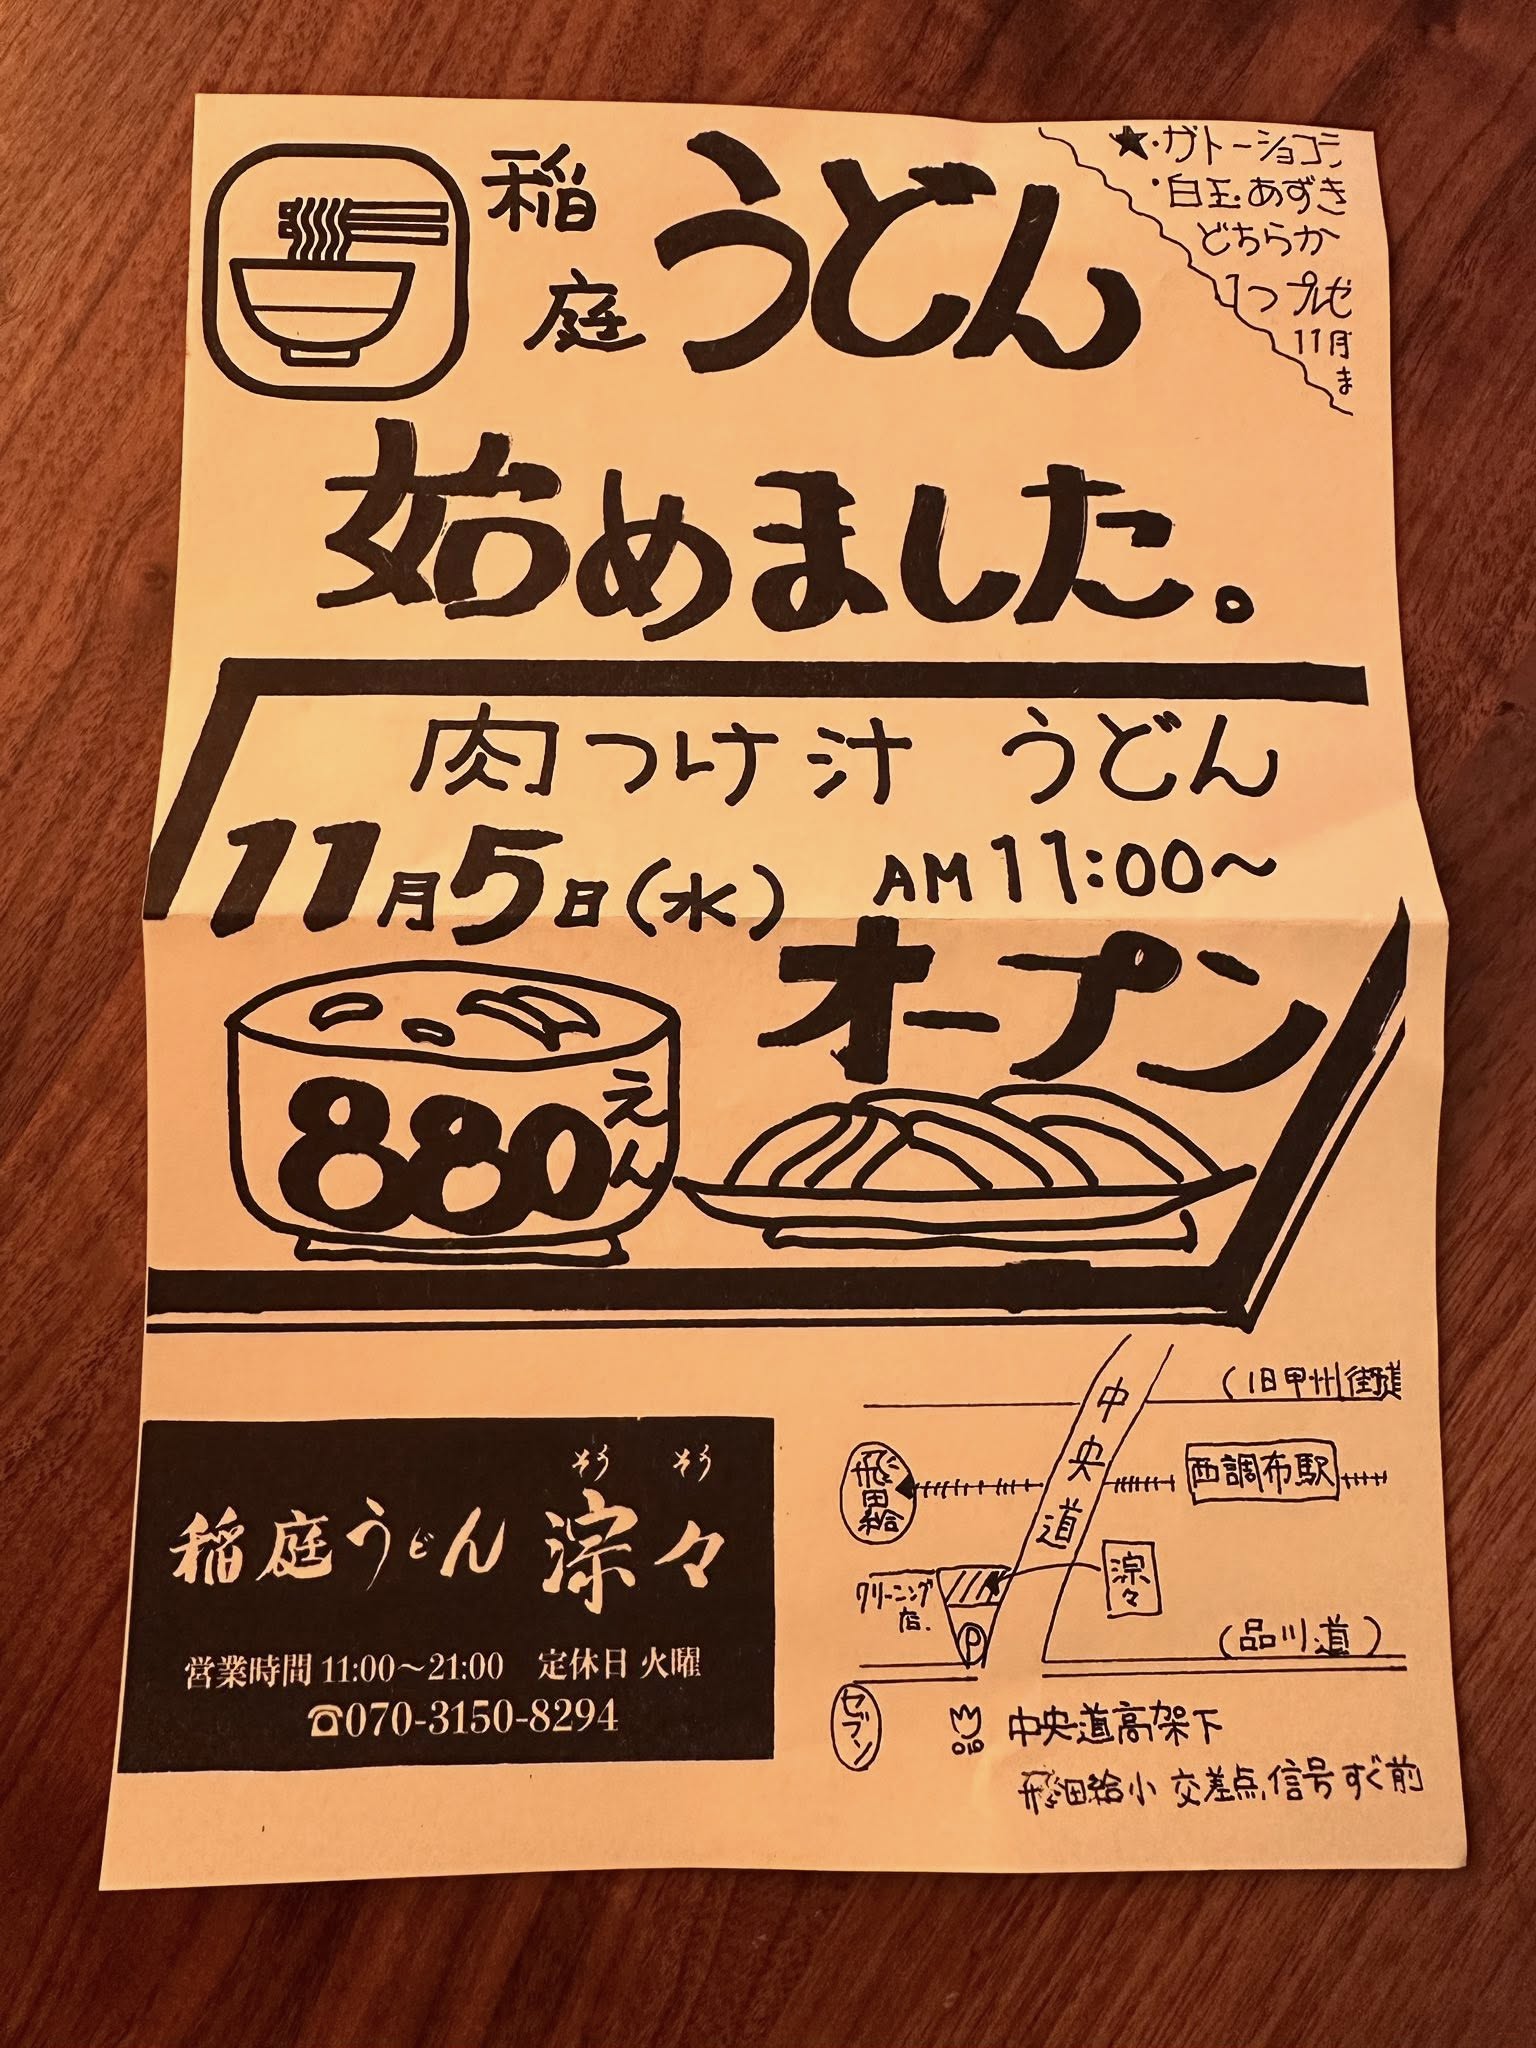 稲庭 うどん
始めました。
★・ガトーショコラ
・白玉・あずき
どちらか
1つ プレゼ
11月
ま
肉つけ汁 うどん
11月5日(水) AM11:00〜
オープン
880えん
そう そう
稲庭うどん 淙々
営業時間 11:00〜21:00 定休日 火曜
☎070-3150-8294
(旧甲州街道
中央道
飛田給
西調布駅
淙々
クリーニング
店.
P
(品川道)
セブン
中央道高架下
飛田給小 交差点、信号すぐ前